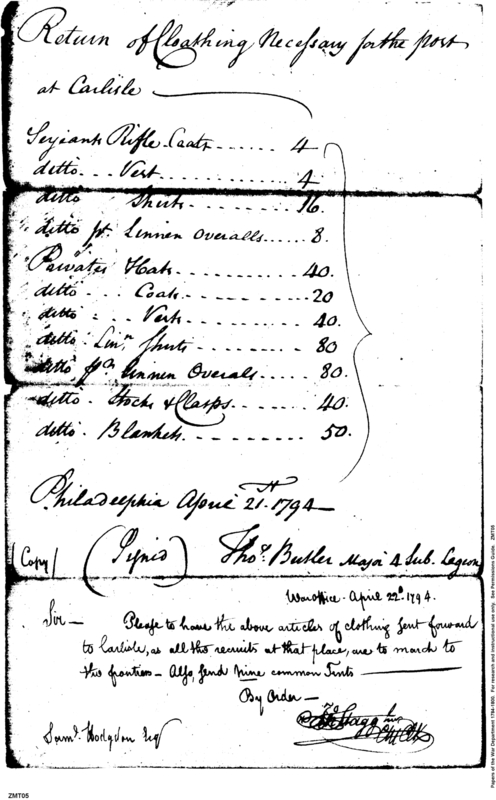 Return of Cloathing Necessary for the post
at Carlisle
Serjeants Rifle Coats - - - - - - 4
ditto - - - Vest - - - - - - - - 4
ditto Shirts - - - - - - - - 16.
ditto pr. Linnen Overalls - - - - - 8.
Privates Hats - - - - - - - - - 40.
ditto - - - Coats - - - - - - - - 20
ditto - - - Vests - - - - - - - - 40.
ditto Linn. Shirts - - - - - - 80
ditto prs Linnen Overals - - - - - 80.
ditto - Stocks & Clasps - - - - - 40.
ditto - Blankets - - - - - - - - 50.
Philadelphia April 21st 1794 —
(Copy) (Signed) Thos. Butler Major 4 Sub. Legion
War Office - April 22d. 1794.
Sir — Please to have the above articles of clothing sent forward
to Carlisle, as all the recruits at that place, are to march to
the frontiers — Also, send nine common Tents —
By Order —
Jno Stagg Junr
Saml. Hodgdon Esqr
Ch Clk
ZMT05
Papers of the War Department 1784-1800. For research and instructional use only. See Permissions Guide. ZMT05